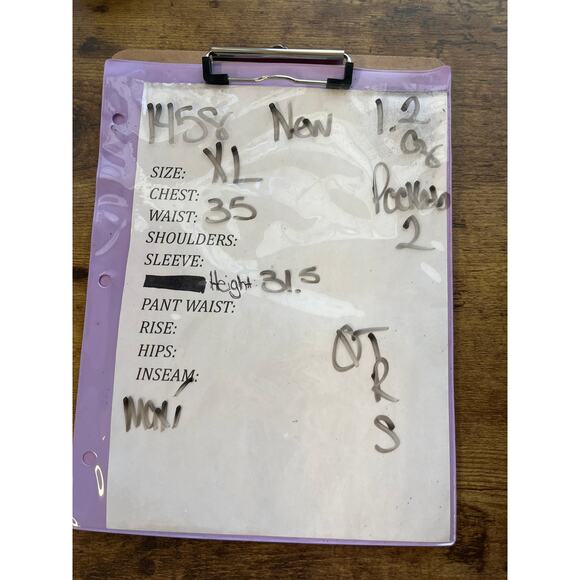 1458 New 1.2
oz
SIZE: XL
CHEST:
Pockets
WAIST: 35
2
SHOULDERS:
SLEEVE:
Height: 31.5
PANT WAIST:
RISE:
HIPS:
INSEAM:
Maxi